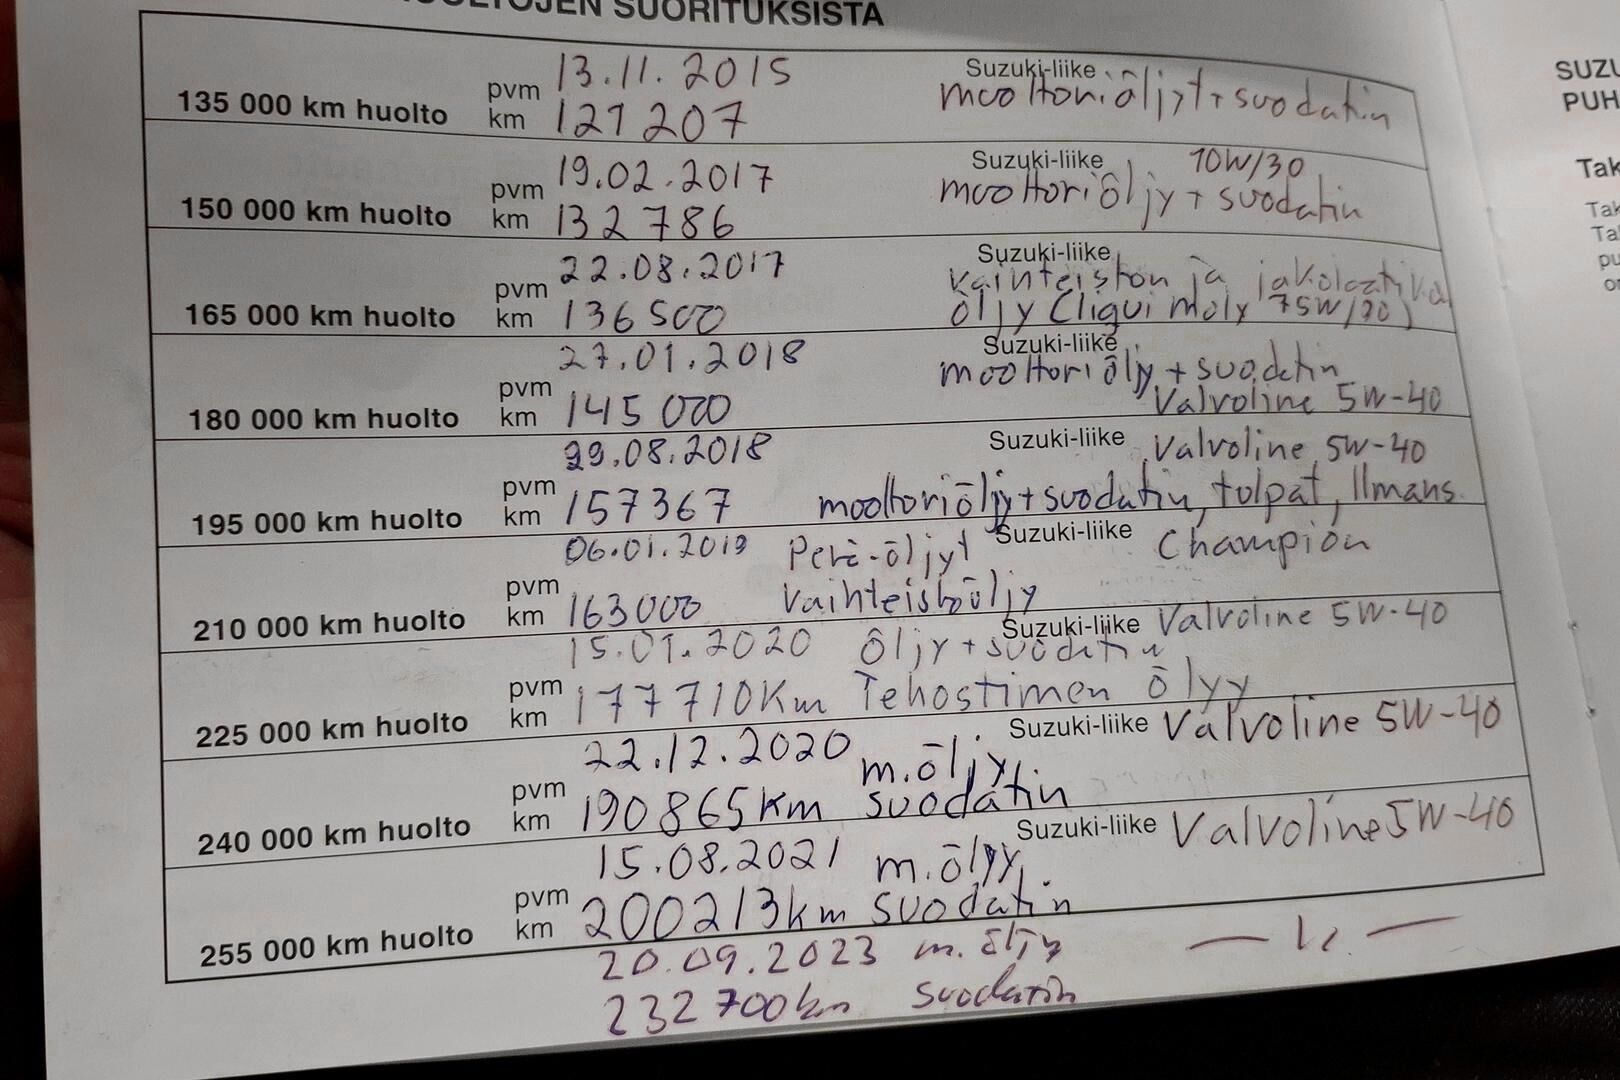 SUORITUKSISTA
135 000 km huolto
pvm 13.11.2015
km 121 207
Suzuki-liike
moottoriöljyt + suodatin
150 000 km huolto
pvm 19.02.2017
km 132 786
Suzuki-liike 10W/30
moottoriöljy + suodatin
165 000 km huolto
pvm 22.08.2017
km 136 500
Suzuki-liike
vaihteiston ja
öljy (liqui moly 75W/90)
180 000 km huolto
pvm 27.01.2018
km 145 000
Suzuki-liike
moottoriöljy + suodatin
Valvoline 5W-40
195 000 km huolto
pvm 29.08.2018
km 157367
Suzuki-liike Valvoline 5W-40
moottoriöljy + suodatin, tulpat, Ilmans.
210 000 km huolto
pvm 06.01.2019
km 163000
Perä-öljyt Suzuki-liike Champion
Vaihteistoöljy
225 000 km huolto
pvm 15.01.2020
km 177710Km
Suzuki-liike Valvoline 5W-40
öljy + suodatin
Tehostimen öljy
240 000 km huolto
pvm 22.12.2020
km 190865km
Suzuki-liike Valvoline 5W-40
m.öljy
suodatin
255 000 km huolto
pvm 15.08.2021
km 200213km
Suzuki-liike Valvoline 5W-40
m.öljy
suodatin
20.09.2023 m. öljy
232 700km suodatin
SUZU
PUH
Tak
Tak
Ta
pu